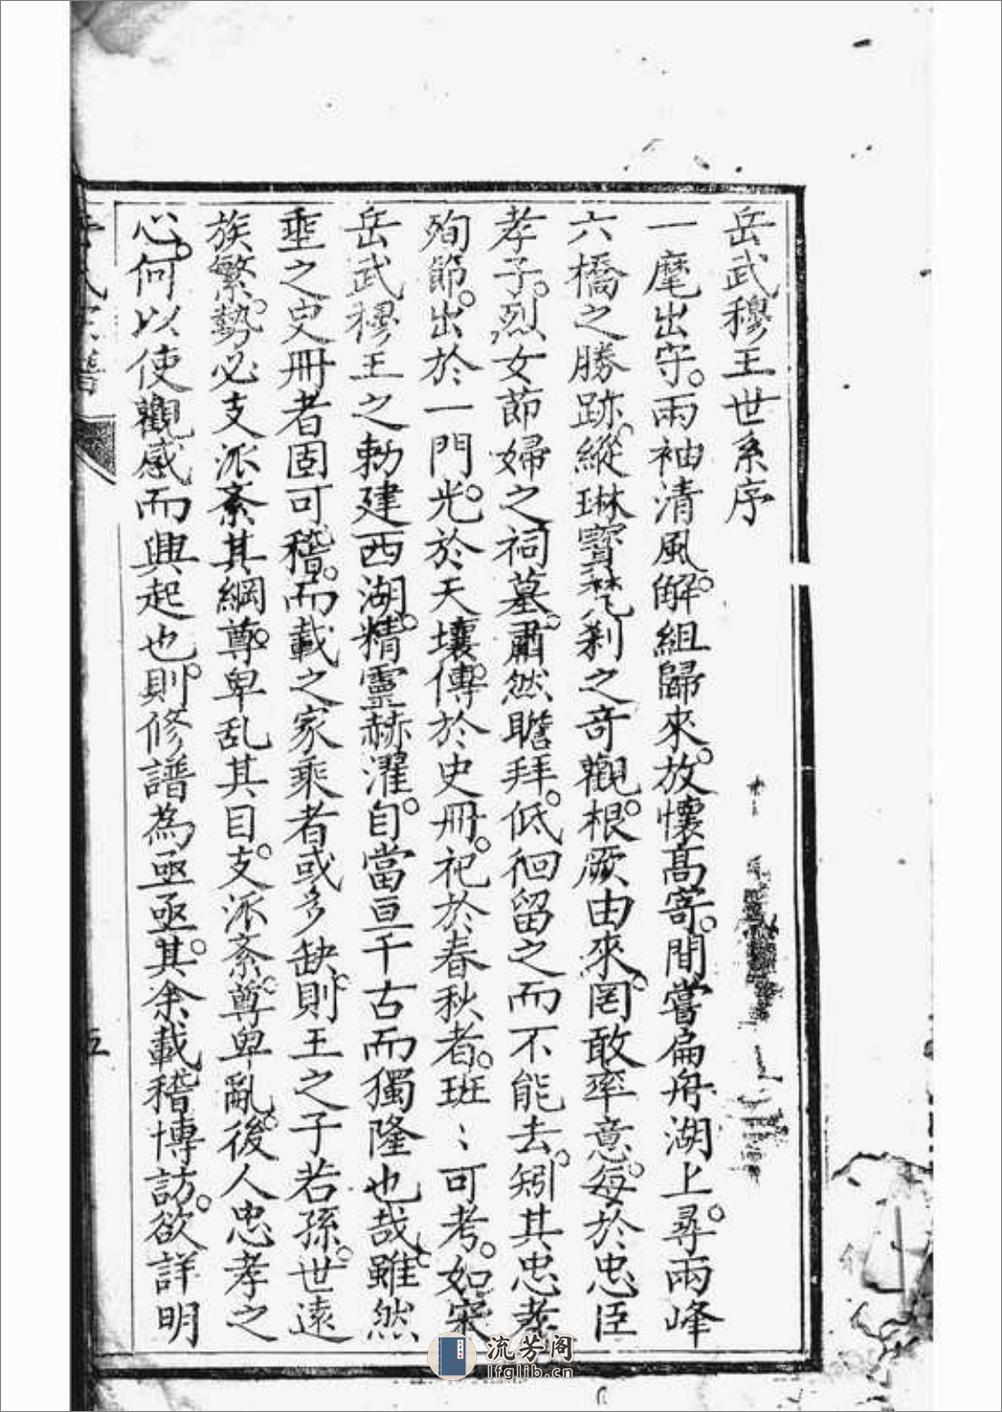 岳武穆王世系序
一麾出守。兩袖清風。解組歸來。放懷高寄。間嘗扁舟湖上。尋兩峰
六橋之勝跡。縱琳寶梵刹之奇觀。根厥由來。罔敢率意。每於忠臣
孝子。烈女節婦之祠墓。肅然瞻拜。低徊留之而不能去。矧其忠孝
殉節。出於一門。光於天壤。傳於史冊。祀於春秋者。班〻可考。如宋
岳武穆王之勅建西湖。精靈赫濯。自當亘千古而獨隆也哉。雖然
垂之史冊者固可稽。而載之家乘者或多缺。則王之子若孫。世遠
族繁。勢必支派紊其綱。尊卑乱其目。支派紊。尊卑亂。後人忠孝之
心。何以使觀感而興起也。則修譜為亟亟。其余載稽博訪。欲詳明
氏宗譜
五
流芳阁
lfglib.cn